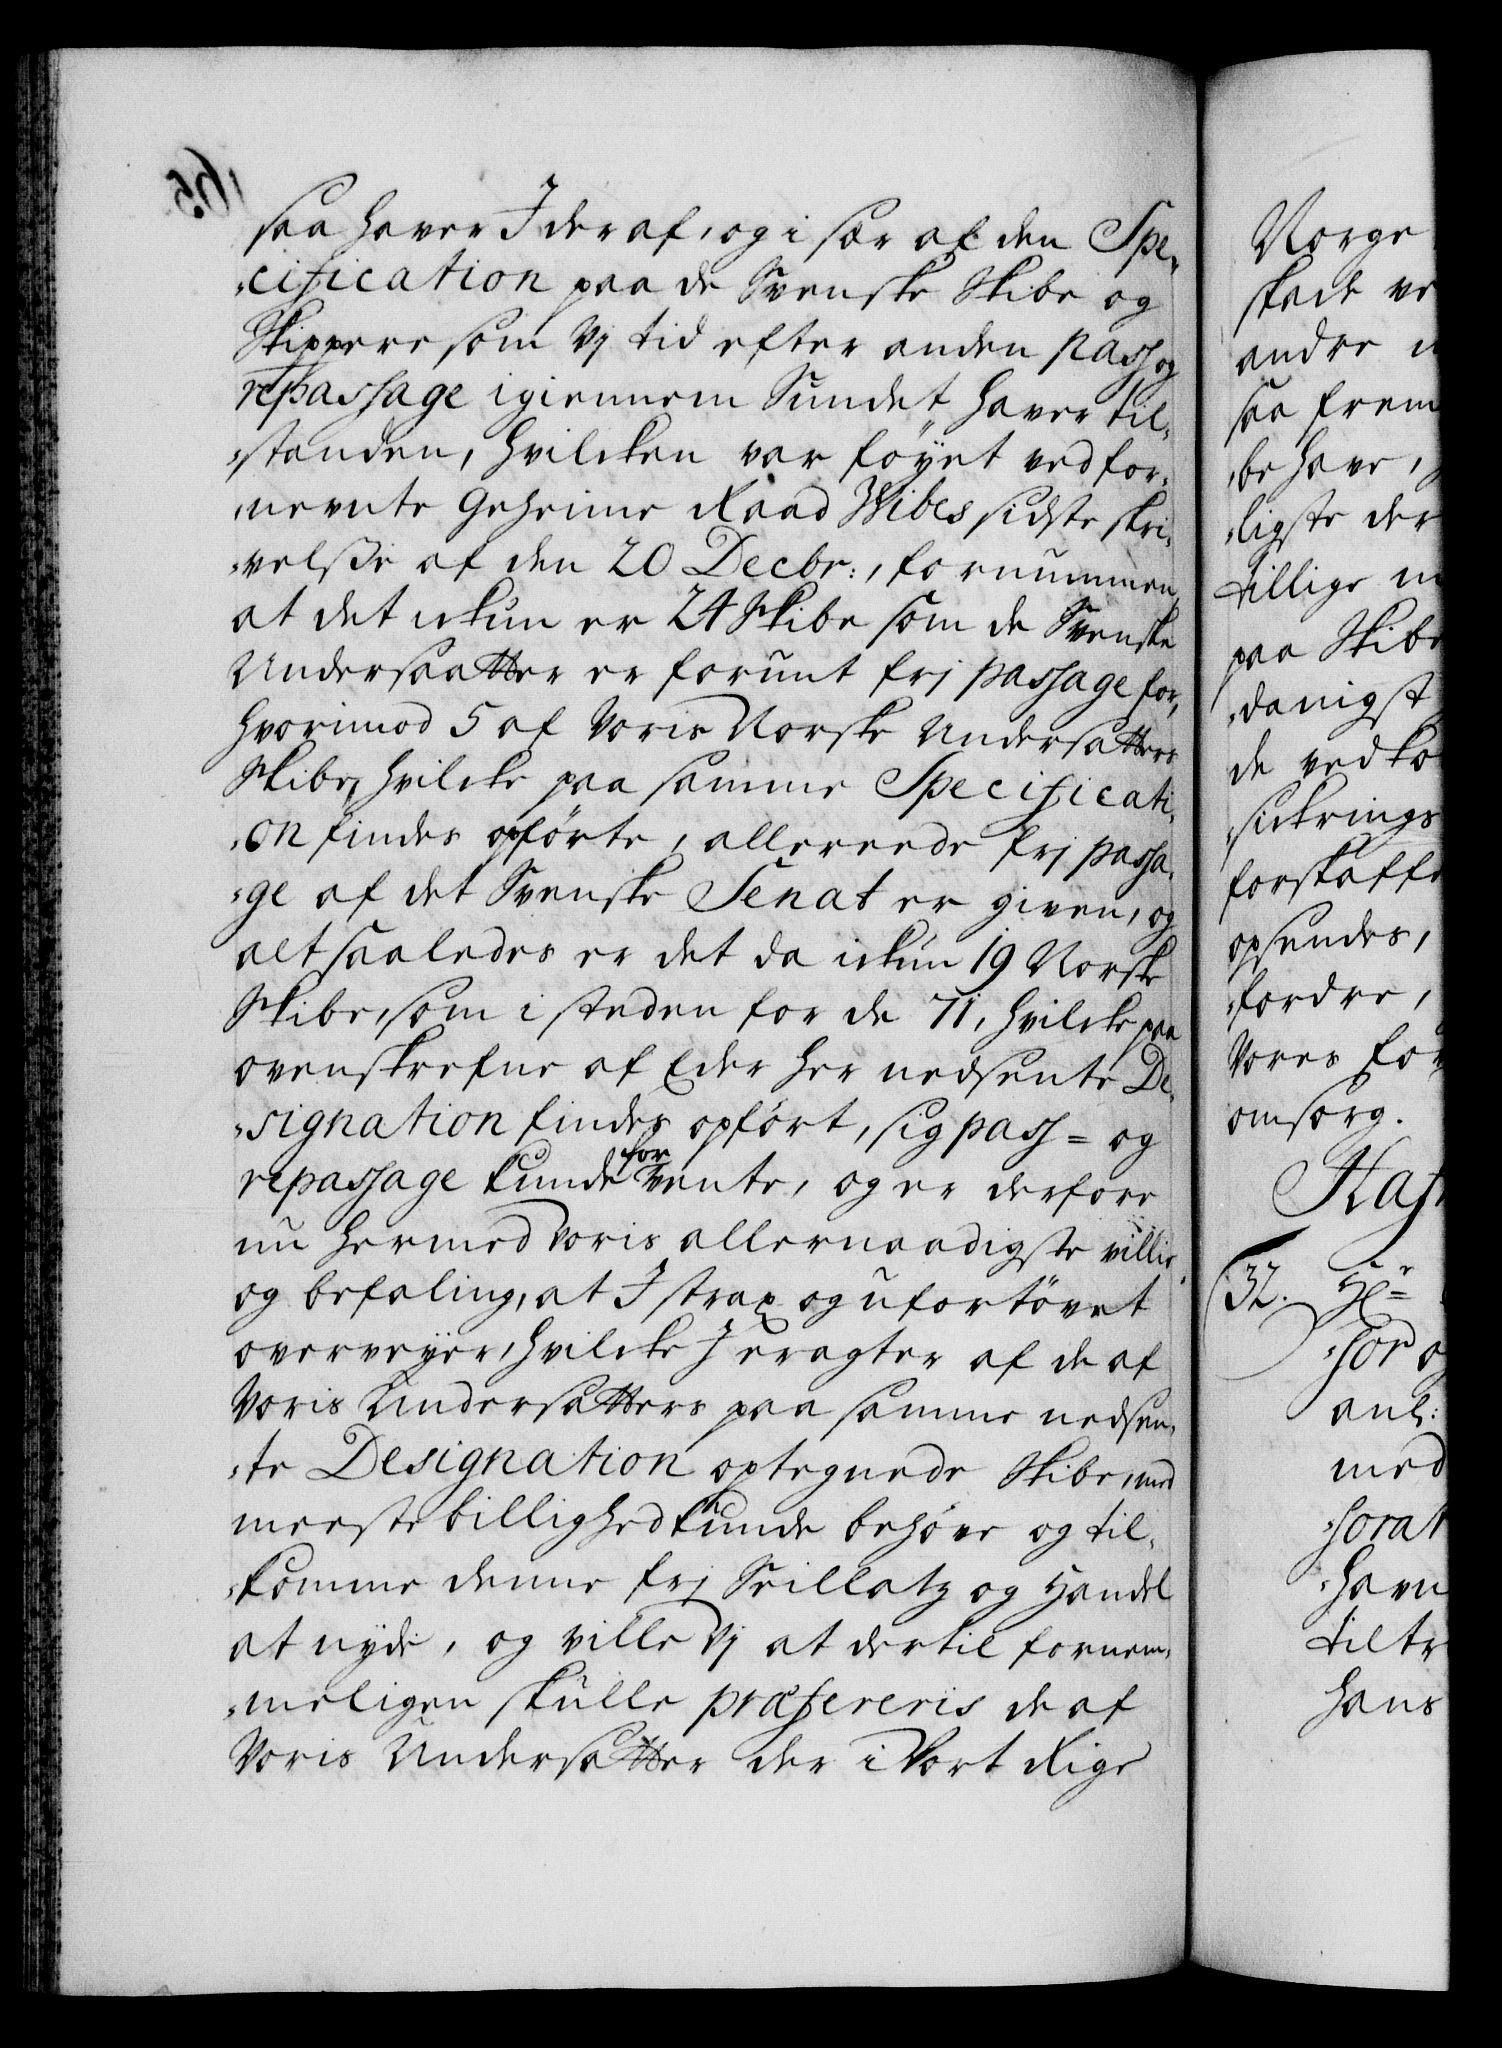 saa haver I deraf, og i sær af den Spe-
-cification paa de Svenske Skibe og
Skippere som Vj tid efter anden pass og
repassage igiennem Sundet haver til-
-standen, hvilcken var føyet ved for-
-nevnte Geheime Raad Wibes sidste skri-
-velsse af den 20 Decbr:, fornummen,
at det ickun er 24 Skibe som de Svenske
Undersaatter er forunt frj passage for,
hvorimod 5 af Voris Norske Undersatters
Skibe, hvilcke paa samme Specificati-
-on findes opførte, allereede frj passa-
-ge af det Svenske Senat er given, og
alt saaledes er det da ickun 19 Norske
Skibe, som i steden for de 71, hvilcke paa
ovenskrefne af Eder her nedsente De-
-signation findes opført, sig pass= og
repassage kunde for vente, og er derfore
nu hermed Voris allernaadigste villie
og befaling, at I strax og ufortøvet
overveyer, hvilcke I eragter af de af
Voris Undersatters paa samme nedsen-
-te Designation optegnede Skibe, med
meeste billighed kunde behøve og til-
-komme denne frj Seillatz og Handel
at nyde, og ville Vj at dertil fornem-
-meligen skulle præfereris de af
Voris Undersatter der i Vort Rige
Norge
skade ve
andre
saa frem
-behave,
-ligste der
tillige
paa Skibe
-danigst
de vedko
-sickrings
forskaffe
opsendes,
-fordre,
Vores for
omsorg.
32. Hr=
-sor og
anl:
med
-sorat
-havn
tiltr
hans